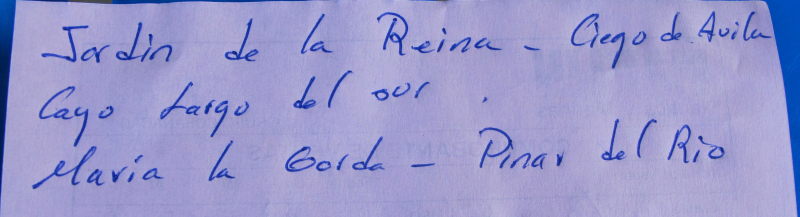 Jardin de la Reina - Ciego de Avila
Cayo Largo del sur.
Maria la Gorda - Pinar del Rio